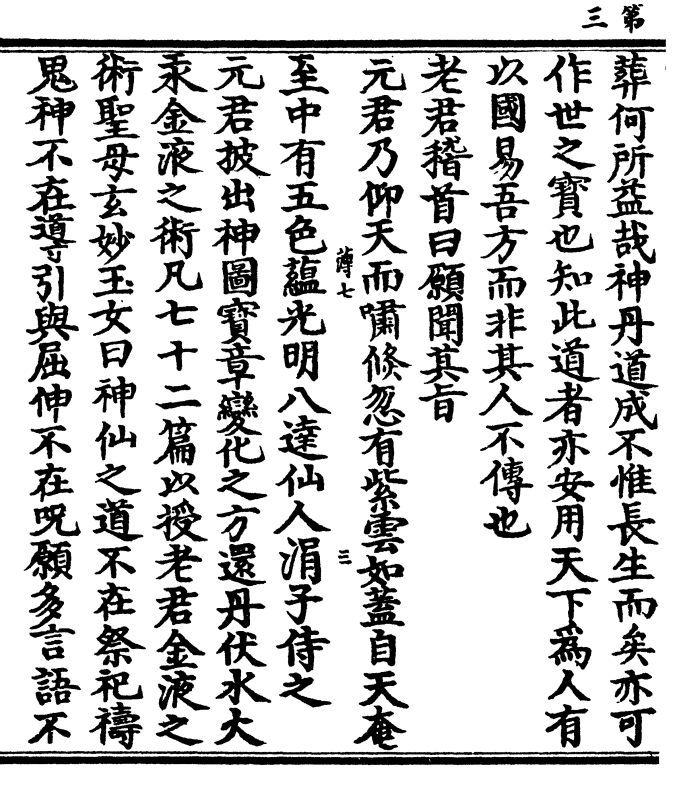 第三
葬何所益哉神丹道成不惟長生而矣亦可
作世之寶也知此道者亦安用天下爲人有
以國易吾方而非其人不傳也
老君稽首曰願聞其旨
元君乃仰天而嘯倐忽有紫雲如蓋自天奄
薄七
三
至中有五色蘊光明八達仙人涓子侍之
元君披出神圖寶章變化之方還丹伏水大
汞金液之術凡七十二篇以授老君金液之
術聖母玄妙玉女曰神仙之道不在祭祀禱
鬼神不在導引與屈伸不在呪願多言語不